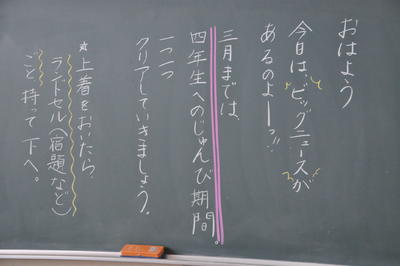 おはよう
今日は、ビッグニュースが
あるのよー!!
三月までは、
四年生へのじゅんび期間。
一つ一つ
クリアしていきましょう。
*上着をおいたら、
ランドセル(宿題など)
ごと持って下へ。